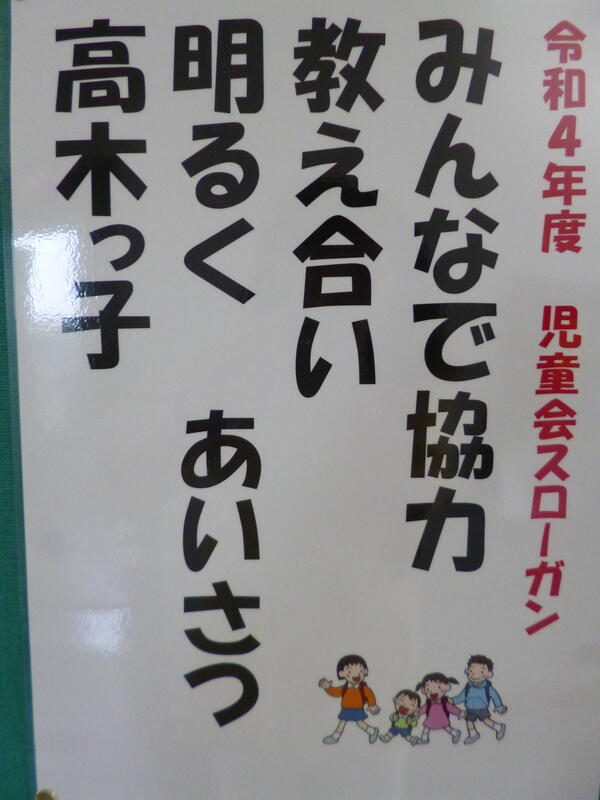 令和4年度　児童会スローガン
みんなで協力
教え合い
明るく　あいさつ
高木っ子